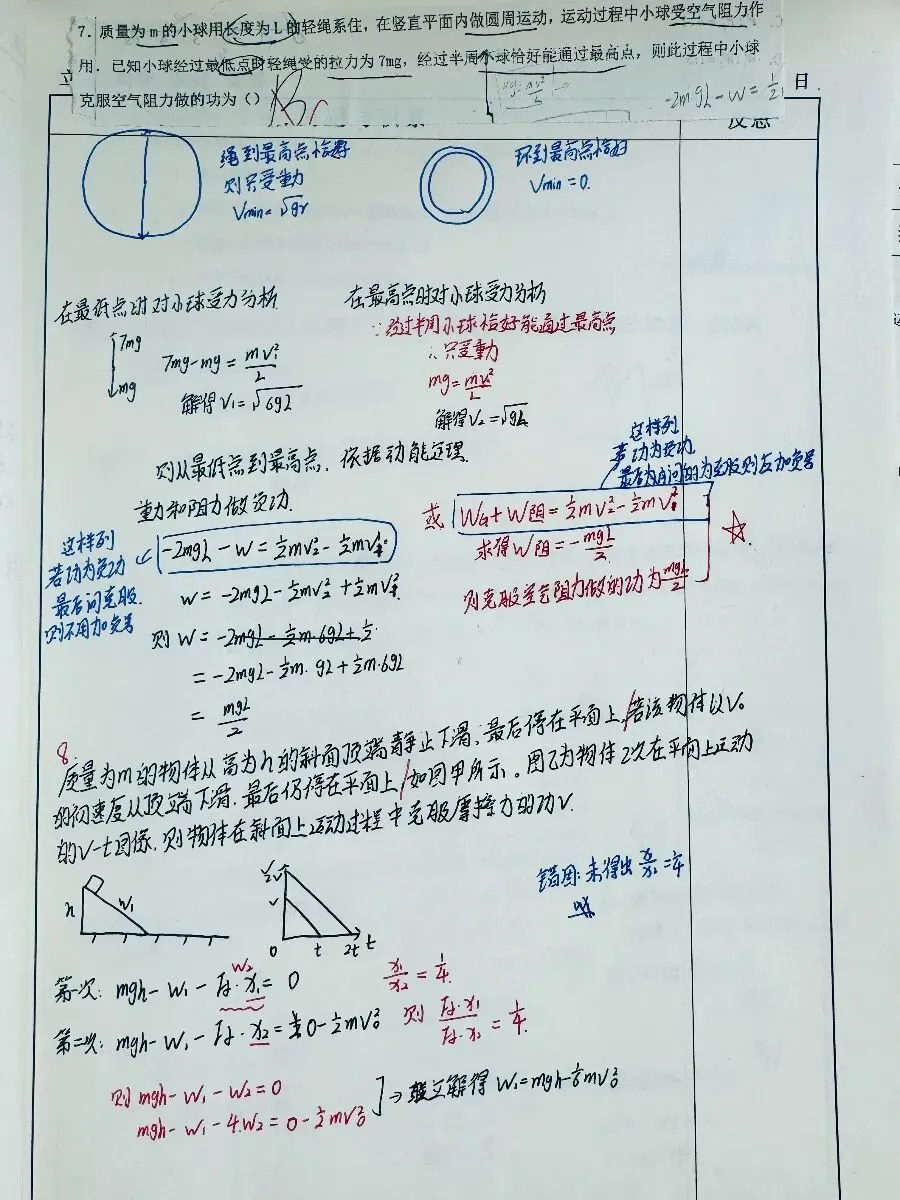 7. 质量为 m 的小球用长度为 L 的轻绳系住，在竖直平面内做圆周运动，运动过程中小球受空气阻力作
用．已知小球经过最低点时轻绳受的拉力为 7mg，经过半周小球恰好能通过最高点，则此过程中小球
克服空气阻力做的功为（）
mg=mv²/L
-2mgL-W=½
日
反思
绳到最高点恰好
则只受重力
Vmin=√gr
环到最高点恰好
Vmin=0.
在最低点时对小球受力分析
7mg
mg
7mg-mg=mv₁²/L
解得V₁=√6gL
在最高点时对小球受力分析
∵经过半周小球恰好能通过最高点
∴只受重力
mg=mv₂²/L
解得V₂=√gL
则从最低点到最高点．依据动能定理．
重力和阻力做负功.
这样列
若功为负功
最后问克服.
则不用加负号
-2mgL-W=½mv₂²-½mv₁²
W=-2mgL-½mv₂²+½mv₁²
则W=-2mgL-½m·6gL+½
=-2mgL-½m·gL+½m·6gL
=mgL/2
这样列
若功为负功
最后为A问的为克服则左加负号
或 WG+W阻=½mv₂²-½mv₁²
求得W阻=-mgL/2
则克服空气阻力做的功为mgL/2
8.
质量为m的物体从高为h的斜面顶端静止下滑，最后停在平面上，若该物体以V₀
的初速度从顶端下滑，最后仍停在平面上，如图甲所示。图乙为物体2次在平面上运动
的V-t图像，则物体在斜面上运动过程中克服摩擦力的功V.
h
W₁
2v
v
0
t
2t
t
错因：未得出x/x₁=¼
第一次：mgh-W₁-Ff·x₁=0
W₂
第二次：mgh-W₁-Ff·x₂=0-½mv₀²
x₁/x₂=¼.
则 Ff·x₁/Ff·x₂=¼.
则mgh-W₁-W₂=0
mgh-W₁-4W₂=0-½mv₀²
→联立解得W₁=mgh-⅙mv₀²